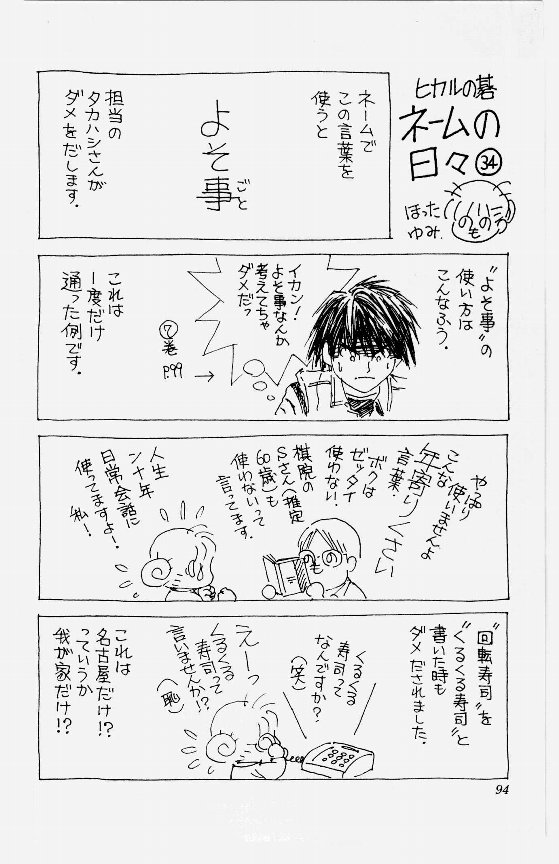 ヒカルの碁
ネームの
日々㉞
ほった
ゆみ
のもの
ネームで
この言葉を
使うと
よそ事
ごと
担当の
タカハシさんが
ダメをだします。
“よそ事”の
使い方は
こんなふう。
イカン!
よそ事なんか
考えてちゃ
ダメだっ
⑦巻
P.99
→
これは
一度だけ
通った例です。
やっぱり
こんな
使いませんよ
年寄りくさい
言葉。
ボクは
ゼッタイ
使わない。
棋院の
Sさん(推定
60歳)も
使わないって
言ってます。
人生
ン十年
日常会話に
使ってますよ!
私!
“回転寿司”を
“くるくる寿司”と
書いた時も
ダメだされました。
くるくる
寿司って
なんですか?
(笑)
えーっ
くるくる
寿司って
言いませんか!?
(恥)
これは
名古屋だけ!?
っていうか
我が家だけ!?
94